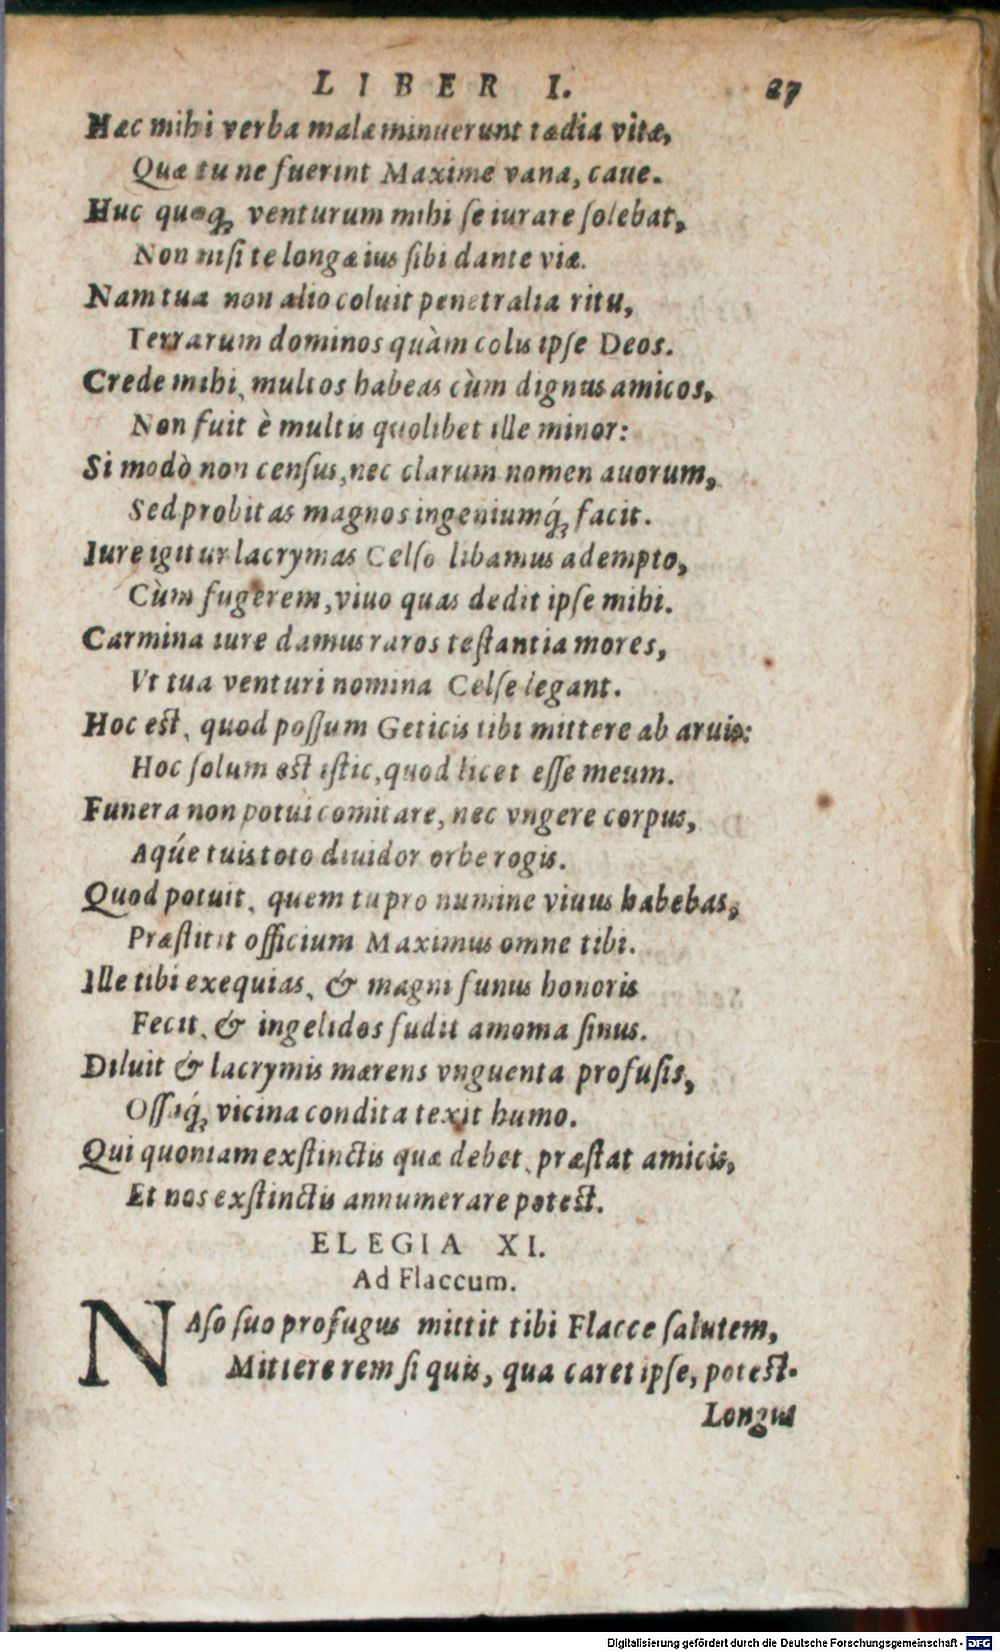 LIBER I. 27
Hæc mihi verba malæ minuerunt tædia vitæ,
Quæ tu ne fuerint Maxime vana, caue.
Huc quoq; venturum mihi se iurare solebat,
Non nisi te longæ ius sibi dante viæ.
Nam tua non alio coluit penetralia ritu,
Terrarum dominos quàm colis ipse Deos.
Crede mihi, multos habeas cùm dignus amicos,
Non fuit è multis quolibet ille minor:
Si modò non census, nec clarum nomen auorum,
Sed probitas magnos ingeniumq́; facit.
Iure igitur lacrymas Celso libamus adempto,
Cùm fugerem, viuo quas dedit ipse mihi.
Carmina iure damus raros testantia mores,
Vt tua venturi nomina Celse legant.
Hoc est, quod possum Geticis tibi mittere ab aruis:
Hoc solum est istic, quod licet esse meum.
Funera non potui comitare, nec vngere corpus,
Aqúe tuis toto diuidor orbe rogis.
Quod potuit, quem tu pro numine viuus habebas,
Præstitit officium Maximus omne tibi.
Ille tibi exequias, & magni funus honoris
Fecit, & in gelidos fudit amoma sinus.
Diluit & lacrymis mærens vnguenta profusis,
Ossaq́; vicina condita texit humo.
Qui quoniam exstinctis quæ debet, præstat amicis,
Et nos exstinctis annumerare potest.
ELEGIA XI.
Ad Flaccum.
NAso suo profugus mittit tibi Flacce salutem,
Mittere rem si quis, qua caret ipse, potest.
Longus
Digitalisierung gefördert durch die Deutsche Forschungsgemeinschaft - DFG